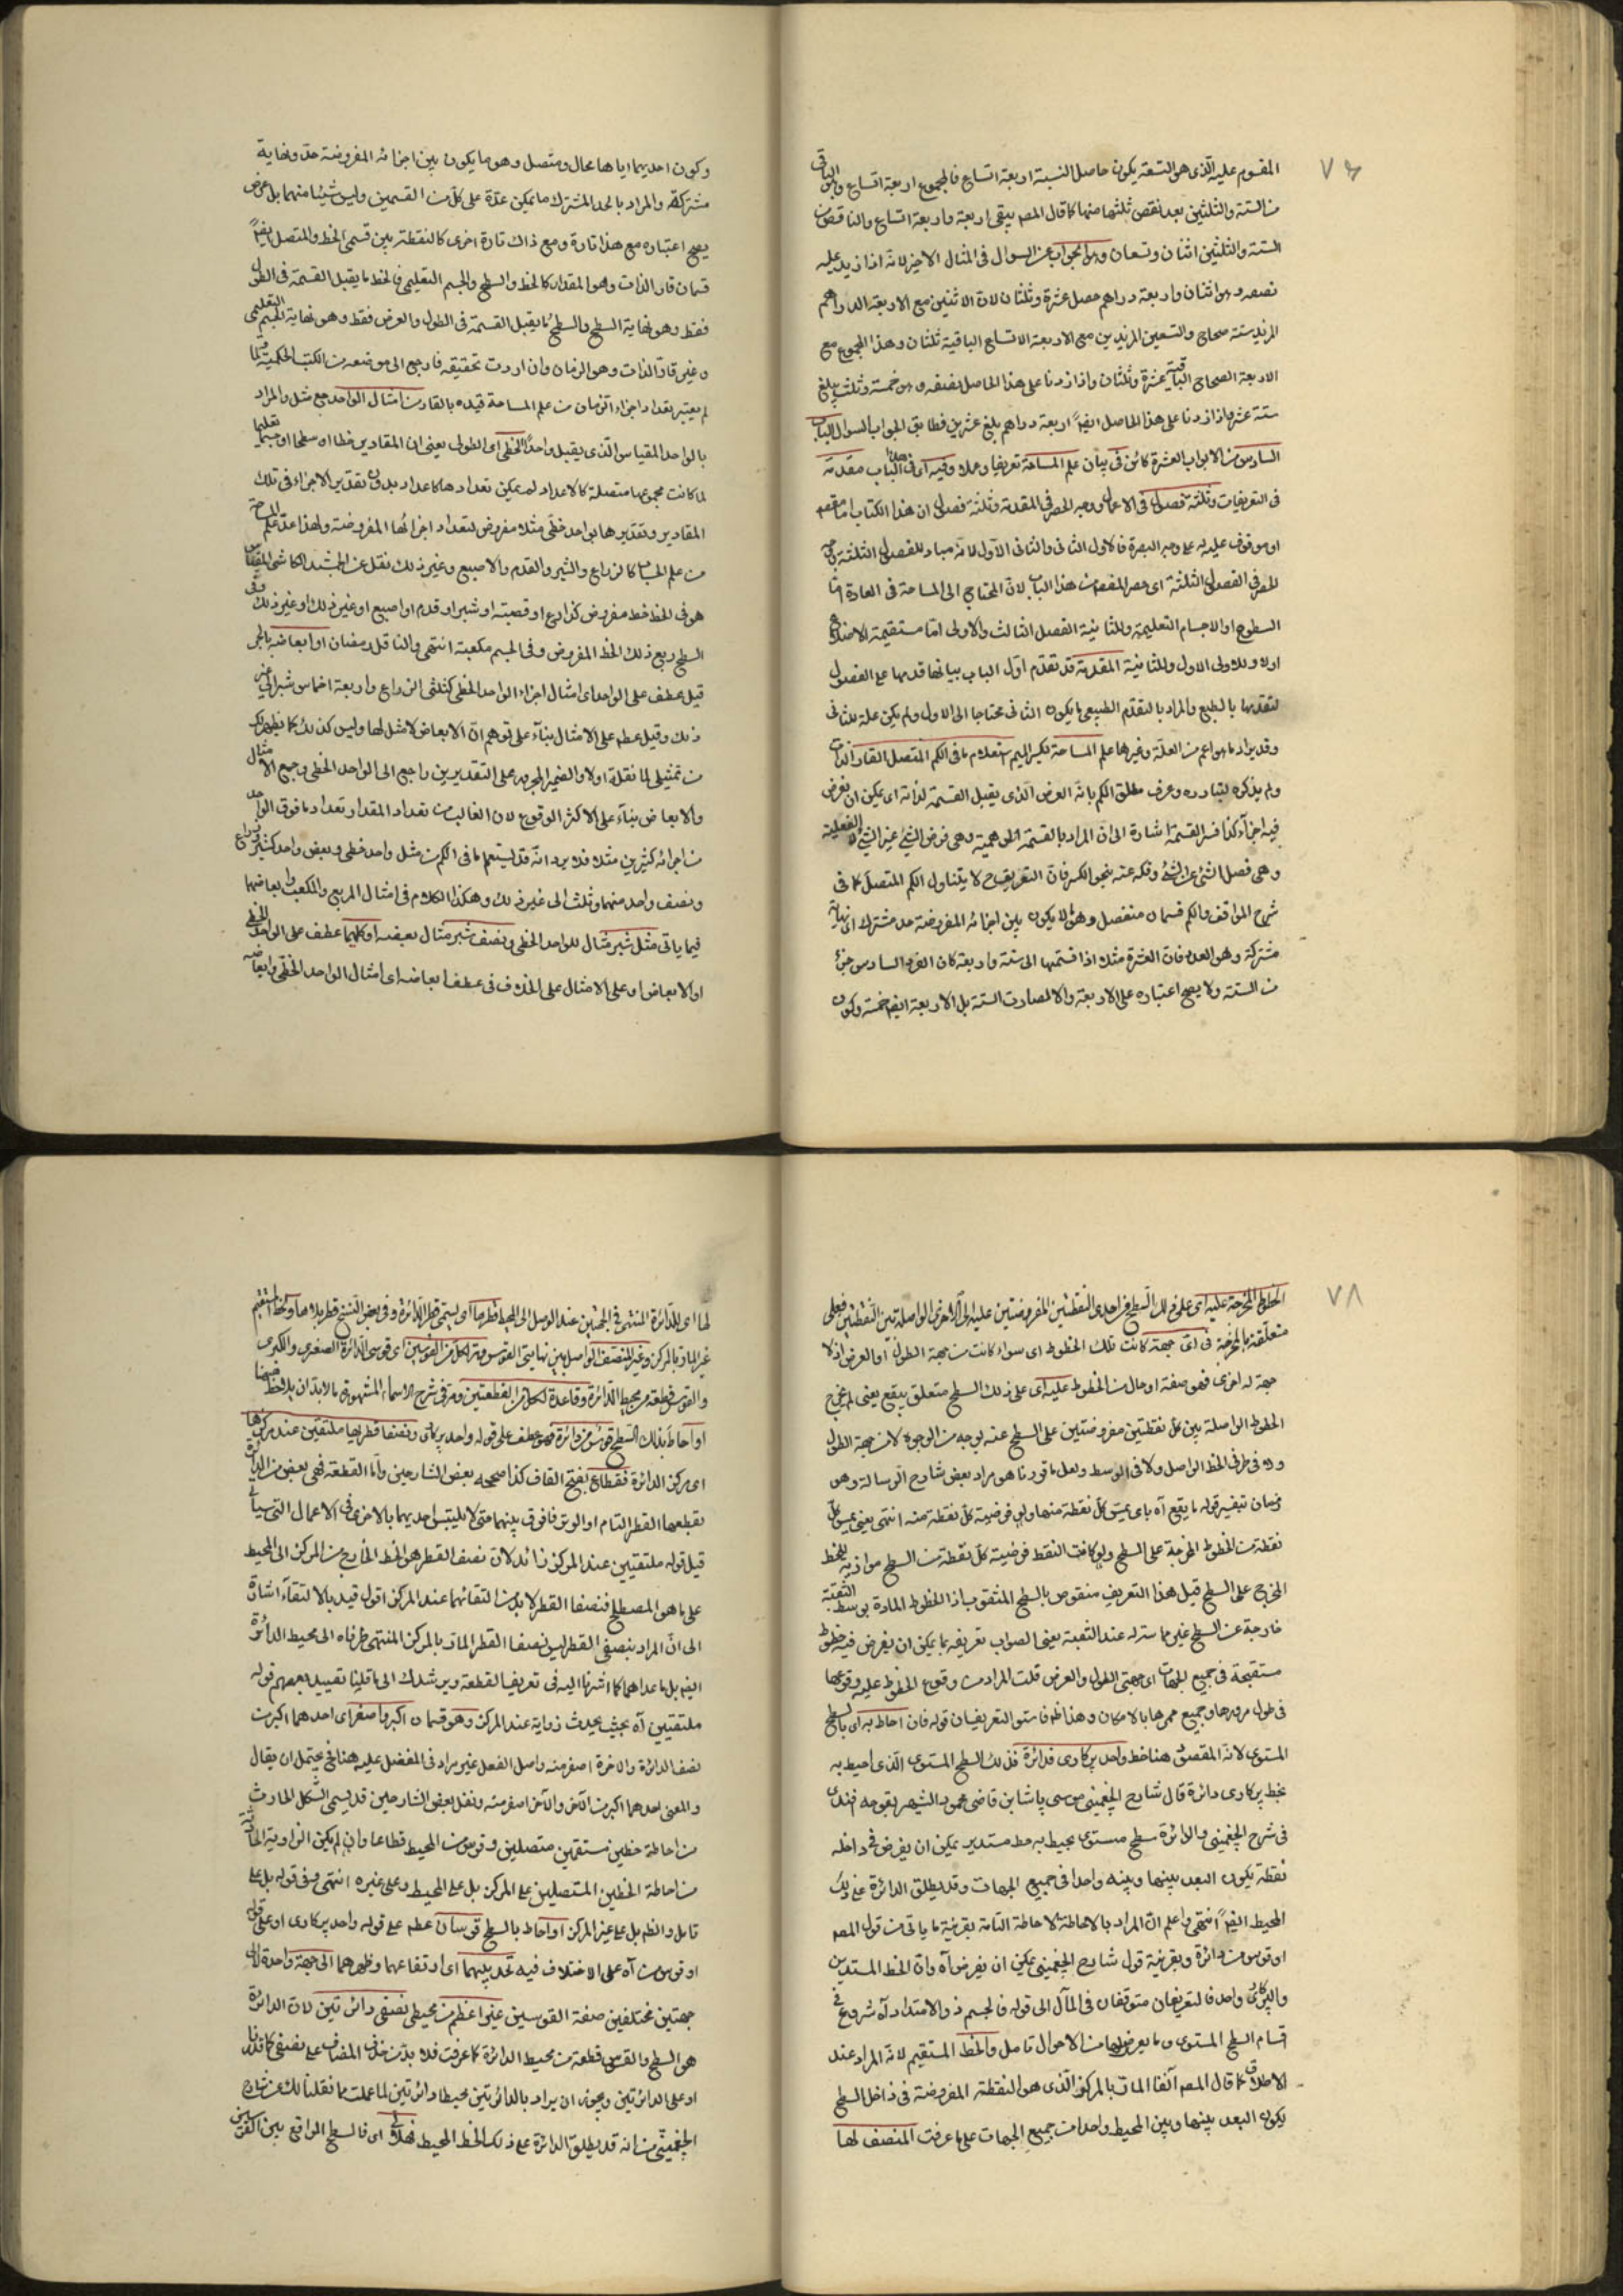 ٧٦
المقسوم عليه الذى هو التسعة يكون حاصل النسبة اربعة اتساع فالمجموع اربعة اتساع والباقى
من الستة والثلثين بعد نقص ثلثها منها كما قال المصـ يبقى اربعة واربعة اتساع والناقص من
الستة والثلثين اثنان وتسعان وهو الجواب عن السوال فى المثال الاخير لانه اذا زيد عليه
نصفه وهو اثنان واربعة دراهم حصل عشرة وثلثان لان الاثنين مع الاربعة الدراهم
المزيد ستة صحاح والتسعين المزيدين مع الاربعة الاتساع الباقية ثلثان وهذا المجموع مع
الاربعة الصحاح الباقية عشرة وثلثان واذا زدنا على هذا الحاصل نصفه وهو خمسة وثلث يبلغ
ستة عشر واذا زدنا على هذا الحاصل ايضا اربعة دراهم بلغ عشرين فطابق الجواب السوال الباب
السادس من الابواب العشرة كائن فى بيان علم المساحة تعريفا وعملا وفيه اى فى هذا الباب مقدمة
فى التعريفات وثلثة فصول فى الاعمال وجه الحصر فى المقدمة وثلثة فصول ان هذا الكتاب اما مقصود
او موقوف عليه له على وجه البصرة فالاول الثانى والثانى الاول لانه مباد للفصول الثلثة وجه
الحصر فى الفصول الثلثة اى حصر المقصود من هذا الباب لان المحتاج الى المساحة فى العادة اما
السطوح او الاجسام التعليمية وللثانية الفصل الثالث والاولى اما مستقيمة الاضلاع
اولا وللاولى الاول وللثانية المقدمة قد تقدم اول الباب بيانها قدمها على الفصول
لتقدمها بالطبع والمراد بالتقدم الطبيعى ما يكون الثانى محتاجا الى الاول ولم يكن علة للثانى
وقد يراد ما هو اعم من العلة وغيرها علم المساحة بكسر الميم استعلام ما فى الكم المتصل القار الذات
ولم يذكره لتبادره وعرف مطلق الكم بانه العرض الذى يقبل القسمة لذاته اى يمكن ان يفرض
فيه اجزآء كذا فسر القسمة اشارة الى ان المراد بالقسمة الوهمية وهى فرض الشئ غير الشئ لا الفعلية
وهى فصل الشئ عن الشئ وفكه عنه بنحو الكسر فان التعريف ح لا يتناول الكم المتصل كما فى
شرح المواقف والكم قسمان منفصل وهو ما لا يكون بين اجزائه المفروضة حد مشترك اى نهاية
مشتركة وهو العدد فان العشرة مثلا اذا قسمتها الى ستة واربعة كان الفرد السادس جزء
من الستة ولا يصح اعتباره على الاربعة والا لصارت الستة بل الاربعة ايضا خمسة وكون
وكون احديهما اياها محال ومتصل وهو ما يكون بين اجزائه المفروضة حد ونهاية
مشتركة والمراد بالحد المشترك ما يمكن عدّه على كل من القسمين وليس شيئا منهما بل عرض
يصح اعتباره مع هذا تارة ومع ذاك تارة اخرى كالنقطة بين قسمى الخط والمتصل ايضا
قسمان قار الذات وهو المقدار كالخط والسطح والجسم التعليمى فالخط ما يقبل القسمة فى الطول
فقط وهو نهاية السطح والسطح ما يقبل القسمة فى الطول والعرض فقط وهو نهاية الجسم التعليمى
وغير قار الذات وهو الزمان وان اردت تحقيقه فارجع الى موضعه من الكتب الحكمية ولما
لم يعتبر تعداد اجزاء الزمان من علم المساحة قيده بالقار من امثال الواحد جمع مثل والمراد
بالواحد المقياس الذى يقبل واحدًا الخطى اى الطولى يعنى ان المقادير خطا او سطحا او جسما تعليميا
لما كانت مجموعها متصلة كالاعداد لم يمكن تعدادها كاعداد بدون تقدير الاجزاء فى تلك
المقادير وتقديرها بواحد خطى مثلا مفروض لتعداد اجزائها المفروضة ولهذا عد علم المساحة
من علم الحساب كالذراع والشبر والقدم والاصبع وغير ذلك نقل عن الجمشيد الكاشى المقياس
هو فى الخط خط مفروض كذراع او قصبة او شبر او قدم او اصبع او غير ذلك او غير ذلك وفى
السطح ربع ذلك الخط المفروض وفى الجسم مكعبه انتهى والناقل رمضان او ابعاضه بالجر
قيل عطف على الواحد اى امثال اجزاء الواحد الخطى كثلثى الذراع واربعة اخماس شبر الى غير
ذلك وقيل عطف على الامثال بناء على توهم ان الابعاض لا مثل لها وليس كذلك كما يظهر لك
من تمثيلى لما نقلته اولا والضمير المجرور على التقديرين راجع الى الواحد الخطى وجمع الامثال
والابعاض بناء على الاكثر الوقوع لان الغالب من تعداد المقدار تعداد ما فوق الواحد
من اجزائه كثيرين مثلا فلا يرد انه قد يستعلم ما فى الكم من مثل واحد خطى وبعض واحد كشبر وذراع
ونصف واحد منهما وثلث الى غير ذلك وهكذا الكلام فى امثال المربع والمكعب وابعاضهما
فيما ياتى مثل شبر مثال للواحد الخطى ونصف شبر مثال بعضه او كليهما عطف على الواحد الخطى
او الابعاض او على الامثال على الخلاف فى عطف ابعاضه اى امثال الواحد الخطى وابعاضه
٧٨
الخطوط المخرجة عليه اى على ذلك السطح من احدى النقطتين المفروضتين عليه الى الاخرى الواصلة بين النقطتين فعلى
متعلقة بالمخرجة فى اى جهة كانت تلك الخطوط اى سواء كانت من جهة الطول او العرض اذ لا
جهة له اخرى فهو صفة او حال من الخطوط عليه اى على ذلك السطح متعلق بيقع يعنى لم يخرج
الخطوط الواصلة بين كل نقطتين مفروضتين على السطح عنه بوجه من الوجوه لا من جهة الطول
ولا فى طرفى الخط الواصل ولا فى الوسط ولعل ما قررنا هو مراد بعض شارح الرسالة وهو
رمضان بتفسير قوله ما يقع آه باى يمس كل نقطة منها ولو فرضية كل نقطة منه انتهى يعنى يمس كل
نقطة من الخطوط المخرجة على السطح ولو كانت النقط فرضية كل نقطة من السطح موازية للخط
المخرج على السطح قيل هذا التعريف منقوض بالسطح المثقوب اذ الخطوط المارة بوسط الثقبة
خارجة عن السطح غير مماسة له عند الثقبة يعنى الصواب تعريفه بما يمكن ان يفرض فيه خطوط
مستقيمة فى جميع الجهات اى جهتى الطول والعرض قلت المراد من وقوع الخطوط عليه وقوعها
فى طول مرورها وجميع ممرها بالامكان وهذا ظاهر فاستوى التعريفان قوله فان احاط به اى بالسطح
المستوى لانه المقصود هنا خط واحد پركارى فدائرة فذلك السطح المستوى الذى احيط به
بخط پركارى دائرة قال شارح الچغمينى موسى پاشا بن قاضى محمود الشهير بقوجه افندى
فى شرح الچغمينى والدائرة سطح مستوى يحيط به خط مستدير يمكن ان يفرض فى داخله
نقطة يكون البعد بينها وبينه واحدا فى جميع الجهات وقد يطلق الدائرة على ذلك
المحيط ايضا انتهى واعلم ان المراد بالاحاطة الاحاطة التامة بقرينة ما ياتى من قول المصـ
او قوس من دائرة وبقرينة قول شارح الچغمينى يمكن ان يفرض آه وان الخط المستدير
والپركارى واحد فالتعريفان متوقفان فى المآل الى قوله فالجسم ذو الامتداد آه شروع فى
اقسام السطح المستوى وما يعرض لها من الاحوال تامل والخط المستقيم لانه المراد عند
الاطلاق كما قال المصـ آنفا المار بالمركز الذى هو النقطة المفروضة فى داخل السطح
يكون البعد بينها وبين المحيط واحدا من جميع الجهات على ما عرفت المنصف لها
لها اى للدائرة المنتهى فى الجهتين عند الوصل الى المحيط قطرها اى يسمى قطر الدائرة وفى بعض النسخ قطر بلا ها والخط المستقيم
غير المار بالمركز وغير المنصف الواصل بين نهايتى القوس وتر لكل من القوسين اى قوسى الدائرة الصغرى والكبرى
والقوس قطعة من محيط الدائرة وقاعدة لكل من القطعتين ومر فى شرح الاسماء المشهورة ما لا بد ان يلاحظ هنا
او احاط بذلك السطح قوس من دائرة فهو عطف على قوله واحد پركارى ونصفا قطريها ملتقيين عند مركزها
اى مركز الدائرة فقطاع بفتح القاف كذا صححه بعض الشارحين واما القطعة فهى بعض من الدائرة
يقطعها القطر التام او الوتر فافوق بينهما حتى لا يلتبس احديهما بالاخرى فى الاعمال التى سيأتى
قيل قوله ملتقيين عند المركز زائد لان نصف القطر هو الخط الخارج من المركز الى المحيط
على ما هو المصطلح فنصفا القطر لا بد من التقائهما عند المركز اقول قيد بالالتقاء اشارة
الى ان المراد بنصفى القطر ليس نصفا القطر المار بالمركز المنتهى طرفاه الى محيط الدائرة
ايضا بل ما عداهما كما اشرنا اليه فى تعريف القطعة ويرشدك الى ما قلنا تقييد بعضهم قوله
ملتقيين آه بحيث يحدث زاوية عند المركز وهو قسمان اكبر واصغر اى احدهما اكبر من
نصف الدائرة والاخر اصغر منه واصل الفعل غير مراد فى المفضل عليه هنا فح يحتمل ان يقال
والمعنى احدهما اكبر من الآخر والآخر اصغر منه ونقل بعض الشارحين قد يسمى الشكل الحادث
من احاطة خطين مستقيمين متصلين وقوس من المحيط قطاعا وان لم يكن الزاوية الحادثة
من احاطة الخطين المتصلين على المركز بل على المحيط وعلى غيره انتهى وفى قوله بل على
تامل والظ بل على غير المركز او احاط بالسطح قوسان عطف على قوله واحد پركارى او على قوله
او قوس من آه على الاختلاف فيه تحديبهما اى ارتفاعهما وظهرهما الى جهة واحدة لا الى
جهتين مختلفين صفة القوسين غير اعظم من محيطى نصفى دائرتين لان الدائرة
هو السطح والقوس قطعة من محيط الدائرة كما عرفت فلا بد من حذف المضاف على نصفى كما قدرنا
او على الدائرتين ويجوز ان يراد بالدائرتين محيطا دائرتين لما علمت مما نقلنا لك عن شارح
الچغمينى من انه قد يطلق الدائرة على ذلك الخط المحيط فهلالى اى فالسطح الواقع بين القوسين